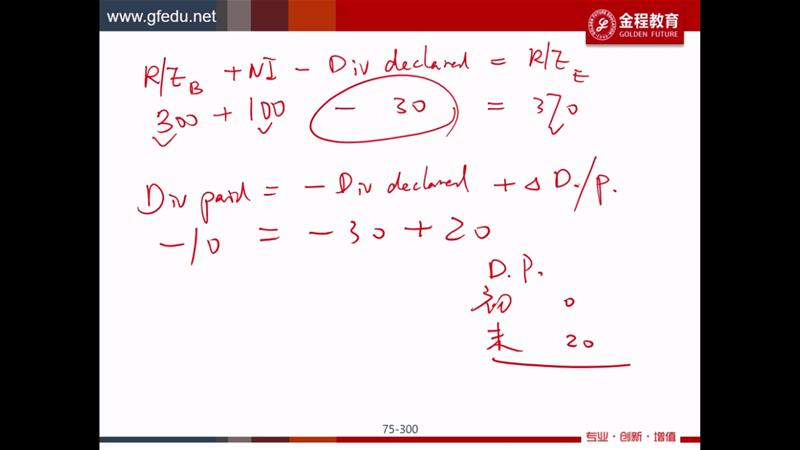 www.gfedu.net
金程教育
GOLDEN FUTURE
R/E_B + NI - Div declared = R/E_E
300 + 100 - 30 = 370
Div paid = - Div declared + Δ D./p.
-10 = -30 + 20
D.P.
初 0
末 20
75-300
专业·创新·增值